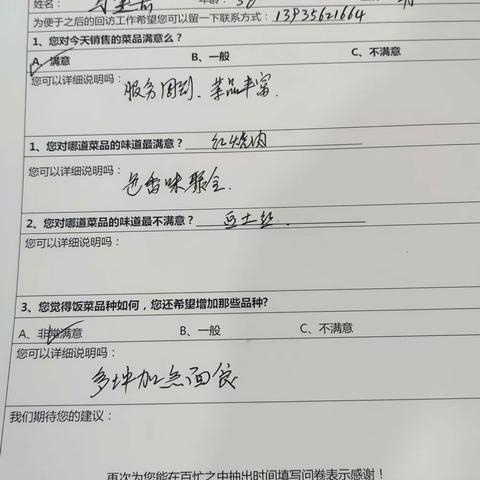 姓名：
为便于之后的回访工作希望您可以留一下联系方式：13935621664
1、您对今天销售的菜品满意么？
A、满意 B、一般 C、不满意
您可以详细说明吗：
服务周到、菜品丰富.
1、您对哪道菜品的味道最满意？ 红烧肉
您可以详细说明吗：
色香味聚全.
2、您对哪道菜品的味道最不满意？ 豆土丝.
您可以详细说明吗：
3、您觉得饭菜品种如何，您还希望增加那些品种?
A、非常满意 B、一般 C、不满意
您可以详细说明吗：
多增加点面食
我们期待您的建议：
再次为您能在百忙之中抽出时间填写问卷表示感谢！